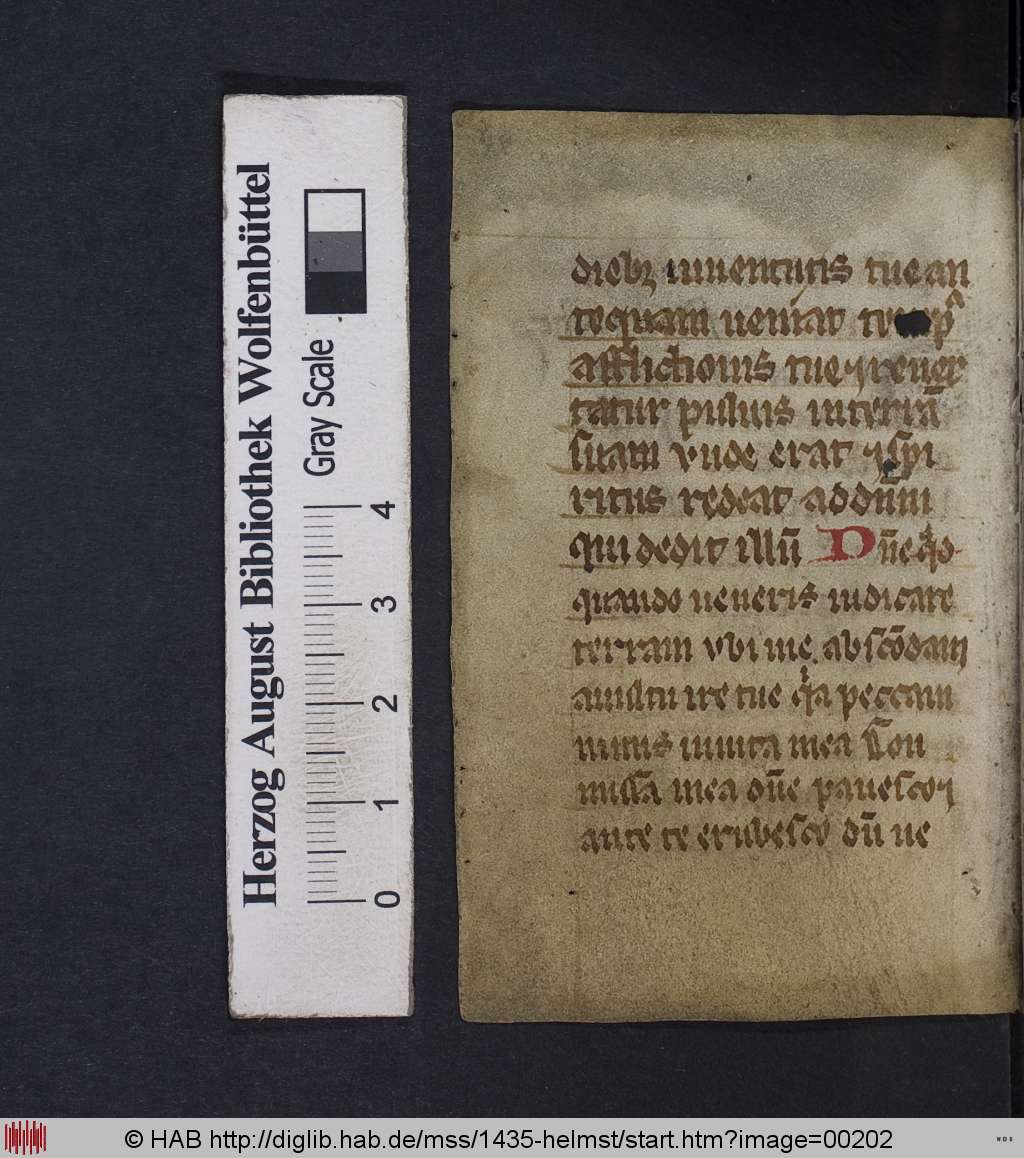 Herzog August Bibliothek Wolfenbüttel
Gray Scale
0 1 2 3 4
diebꝫ iuuentutis tue an
tequam ueniat te p᷑
afflictionis tue ⁊ reuer
tatur puluis in terrā
suam vnde erat ⁊ spi
ritus redeat ad dūm
qui dedit illū Dn̄e qͦ
quando ueneris iudicare
terram vbi me abscōdam
a uultu ire tue qͥa peccaui
nimis in uita mea Com
missa mea dn̄e pauesco ⁊
ante te erubesco dū ue
© HAB http://diglib.hab.de/mss/1435-helmst/start.htm?image=00202